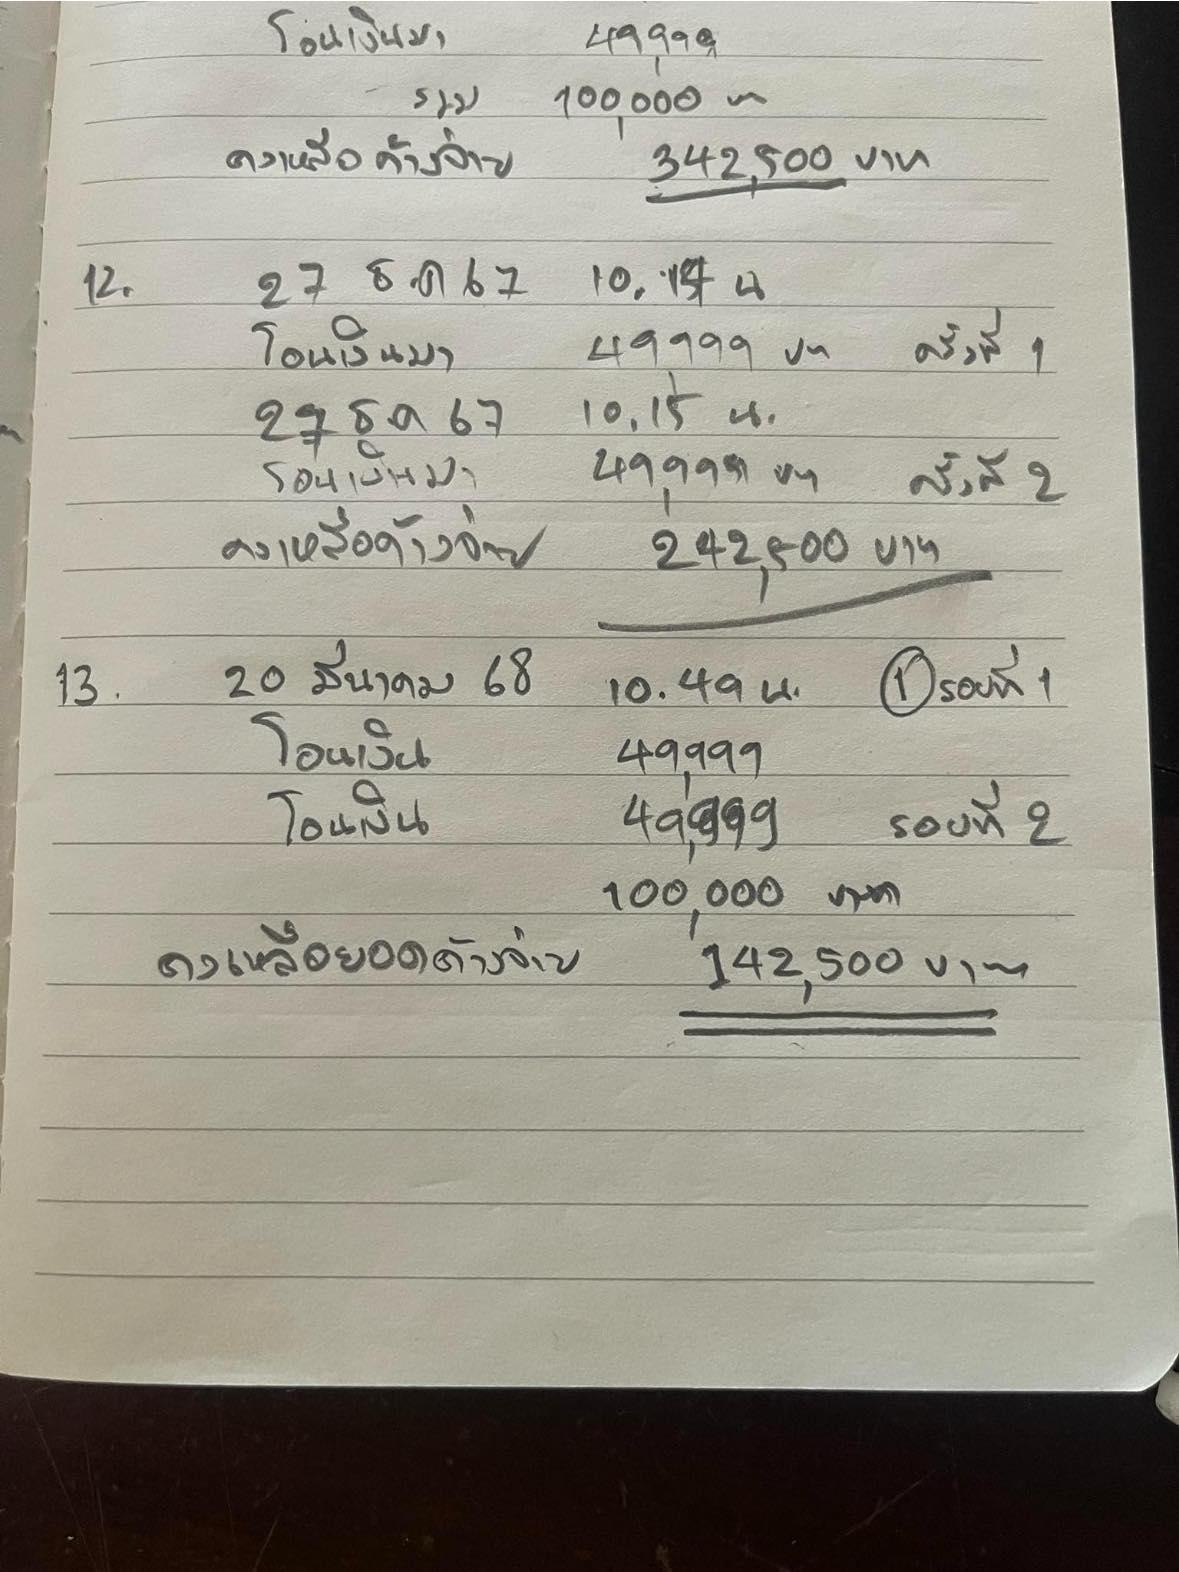 โอนเงินมา 49,999
รวม 100,000 บ
คงเหลือ ค้างจ่าย 342,500 บาท
12. 27 ธ.ค 67 10.14 น
โอนเงินมา 49,999 บาท ครั้งที่ 1
27 ธ.ค 67 10.15 น.
โอนเงินมา 49,999 บาท ครั้งที่ 2
คงเหลือค้างจ่าย 242,500 บาท
13. 20 มีนาคม 68 10.49 น. 1 รอบที่ 1
โอนเงิน 49,999
โอนเงิน 49,999 รอบที่ 2
100,000 บาท
คงเหลือยอดค้างจ่าย 142,500 บาท